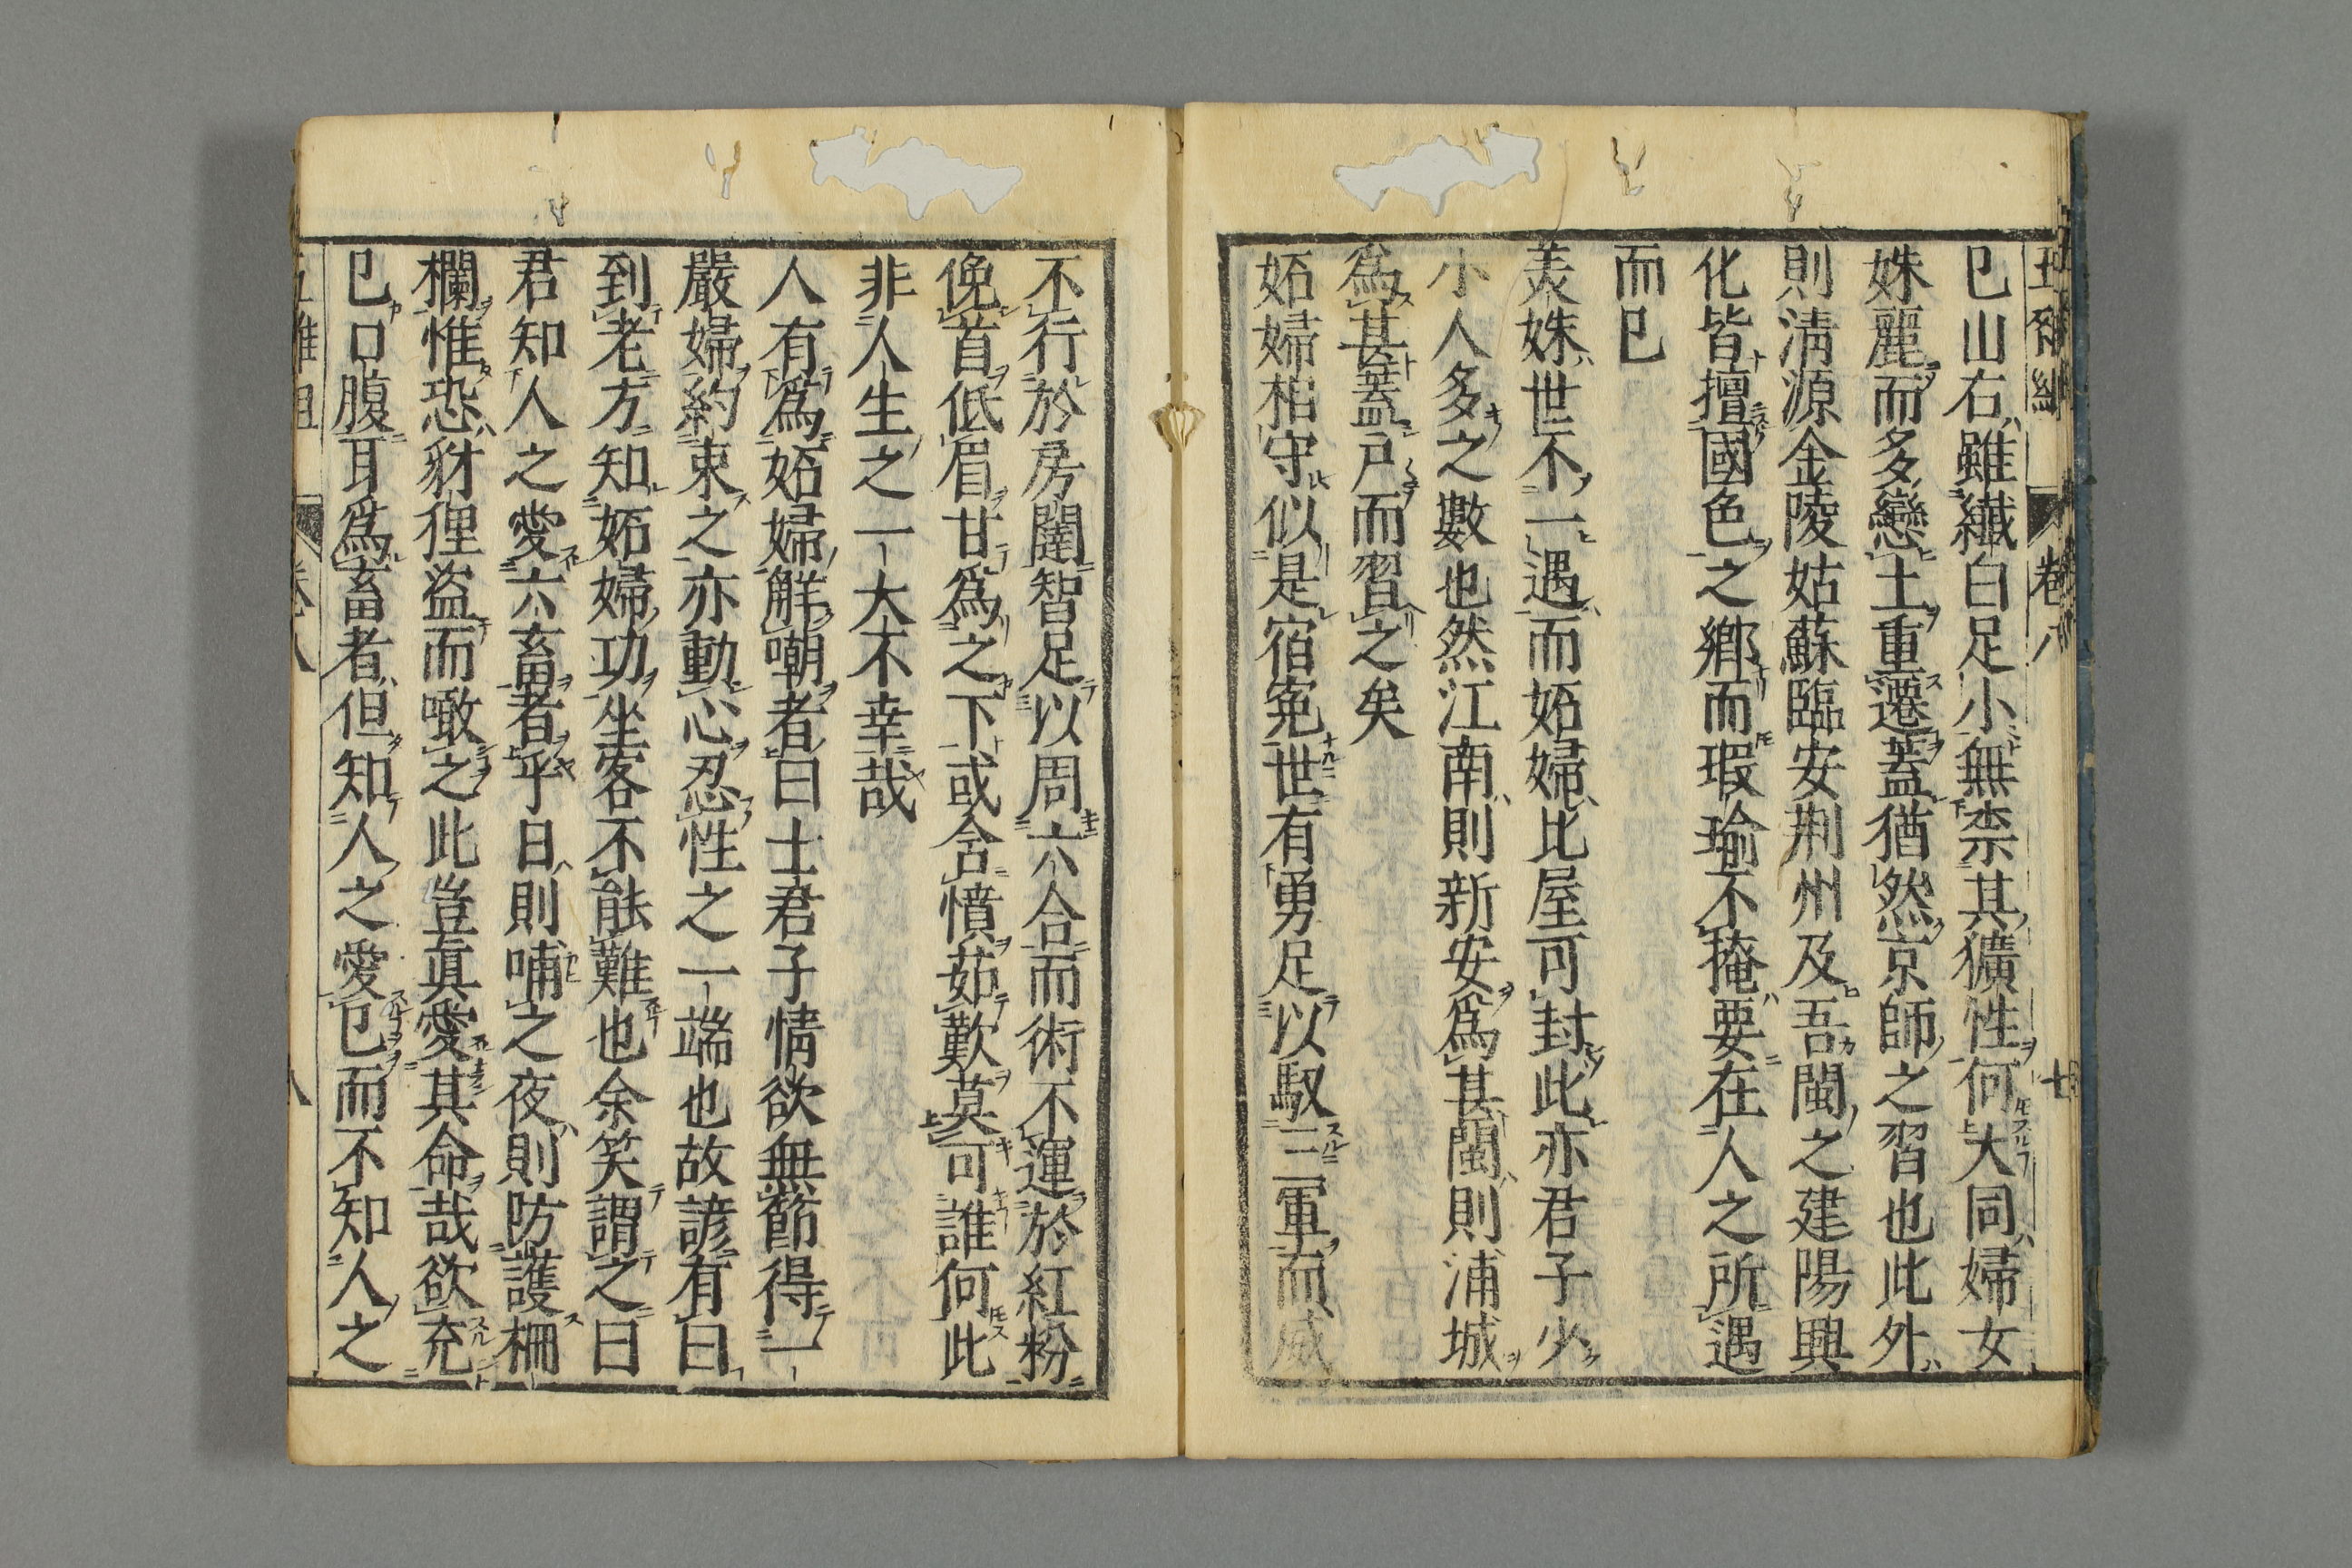 巳山右雖纖白足小無柰其獷性何大同婦女
姝麗而多戀土重遷蓋猶然京師之習也此外
則淸源金陵姑蘇臨安荆州及吾閩之建陽興
化皆擅國色之鄕而瑕瑜不掩要在人之所遇
而巳
美姝世不一遇而妬婦比屋可封此亦君子少
小人多之數也然江南則新安爲甚閩則浦城
爲甚蓋戸而習之矣
妬婦相守似是宿寃世有勇足以馭三軍而威
不行於房闥智足以周六合而術不運於紅粉
俛首低眉甘爲之下或含憤茹歎莫可誰何此
非人生之一大不幸哉
人有爲妬婦解嘲者曰士君子情欲無節得一
嚴婦約束之亦動心忍性之一端也故諺有曰
到老方知妬婦功坐客不能難也余笑謂之曰
君知人之愛六畜者乎日則哺之夜則防護柵
欄惟恐豺狸盜而噉之此豈眞愛其命哉欲充
巳口腹耳爲畜者但知人之愛巳而不知人之
五雜俎
卷八